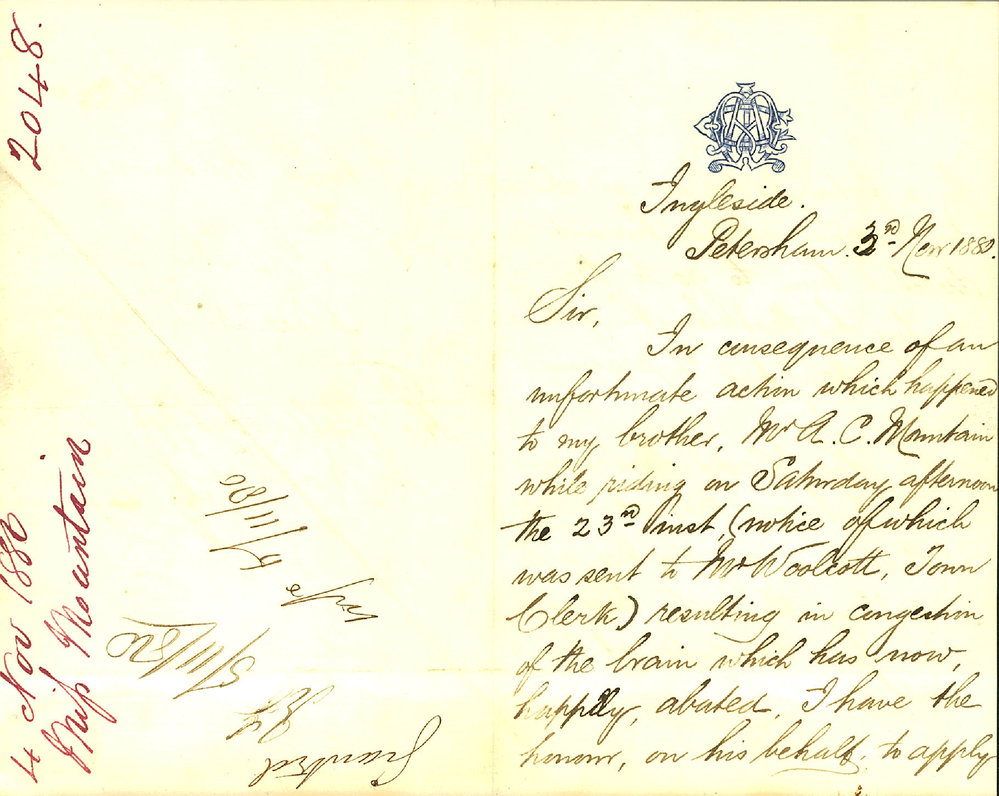 2048.
4 Nov 1880
Miss Mountain
Granted
5/11/80
4/11/80
Ingleside.
Petersham. 3rd Novr 1880.
Sir,
In consequence of an
unfortunate action which happened
to my brother, Mr A. C. Mountain
while riding on Saturday afternoon
the 23rd inst, (notice of which
was sent to Mr Woolcott, Town
Clerk) resulting in congestion
of the brain which has now,
happily, abated, I have the
honour, on his behalf, to apply